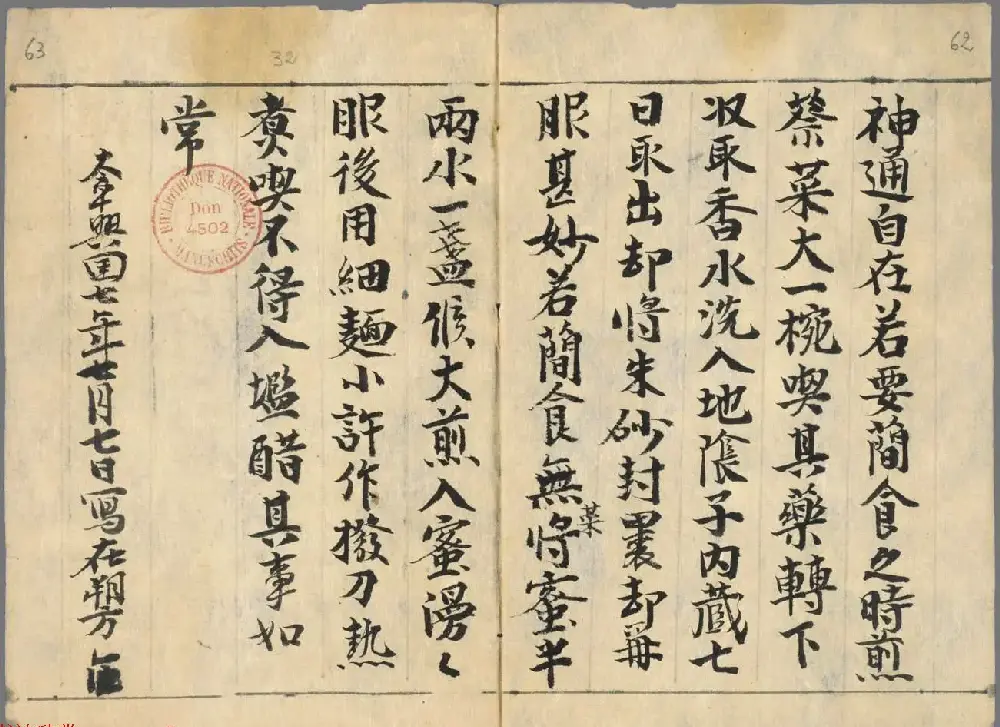 62
神通自在若要蕳食之時煎
蔡菜大一椀喫其藥轉下
収取香水洗入地子内蔵七
日取出却将朱砂封裹却再
服甚妙若蕳食無菜将蜜半
32
63
兩水一盞候大煎入蜜
服後用細麵小許作撥刀熱
煑喫不得入塩醋其事如
常
興国七年七月七日寫在朔方
BIBLIOTHEQUE NATIONALE
Don
4502
MANUSCRITS